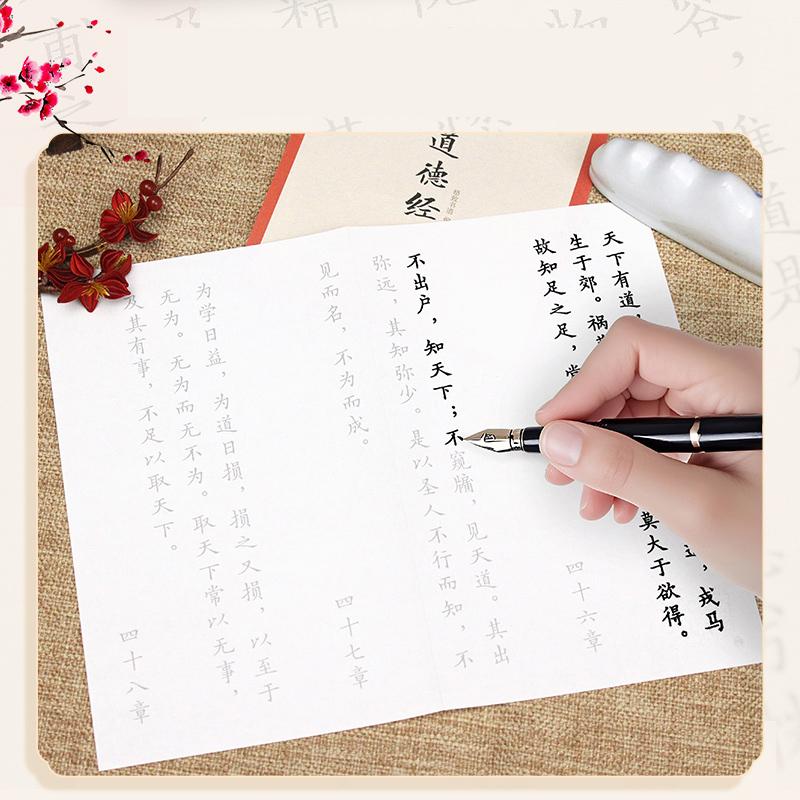 容，
惟道是
道德经
天下有道，
戎马
生于郊。祸
莫大于欲得。
故知足之足，常
四十六章
不出户，知天下；不窥牖，见天道。其出
弥远，其知弥少。是以圣人不行而知，不
见而名，不为而成。
四十七章
为学日益，为道日损，损之又损，以至于
无为。无为而无不为。取天下常以无事，
及其有事，不足以取天下。
四十八章